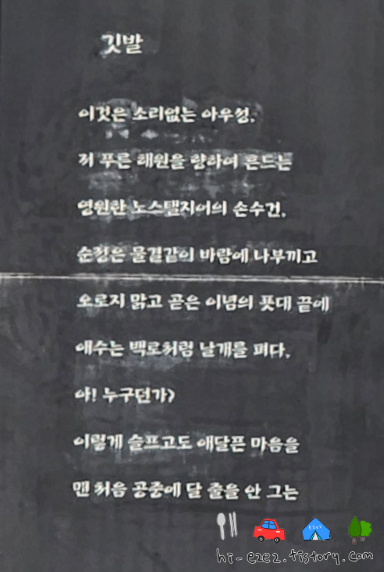 깃발
이것은 소리없는 아우성,
저 푸른 해원을 향하여 흔드는
영원한 노스탤지어의 손수건,
순정은 물결같이 바람에 나부끼고
오로지 맑고 곧은 이념의 푯대 끝에
애수는 백로처럼 날개를 펴다,
아! 누구던가>
이렇게 슬프고도 애달픈 마음을
맨 처음 공중에 달 줄을 안 그는
hi-ezez.tistory.com